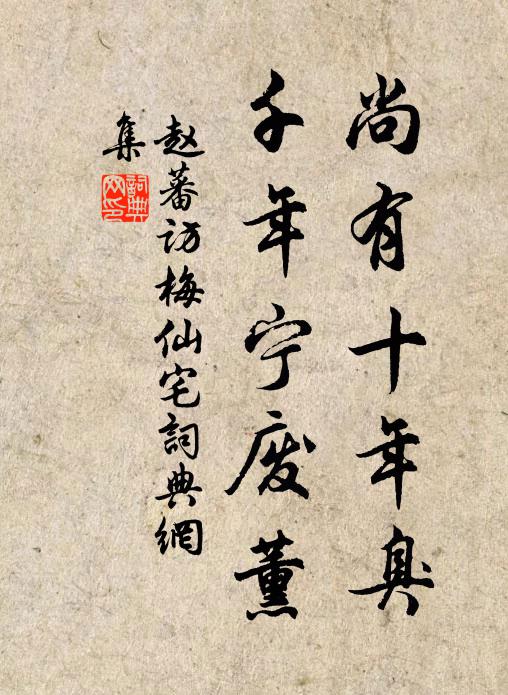 尚有十年臭
千年宁废薰
赵蕃访梅仙宅詞典網
集
詞典
网印